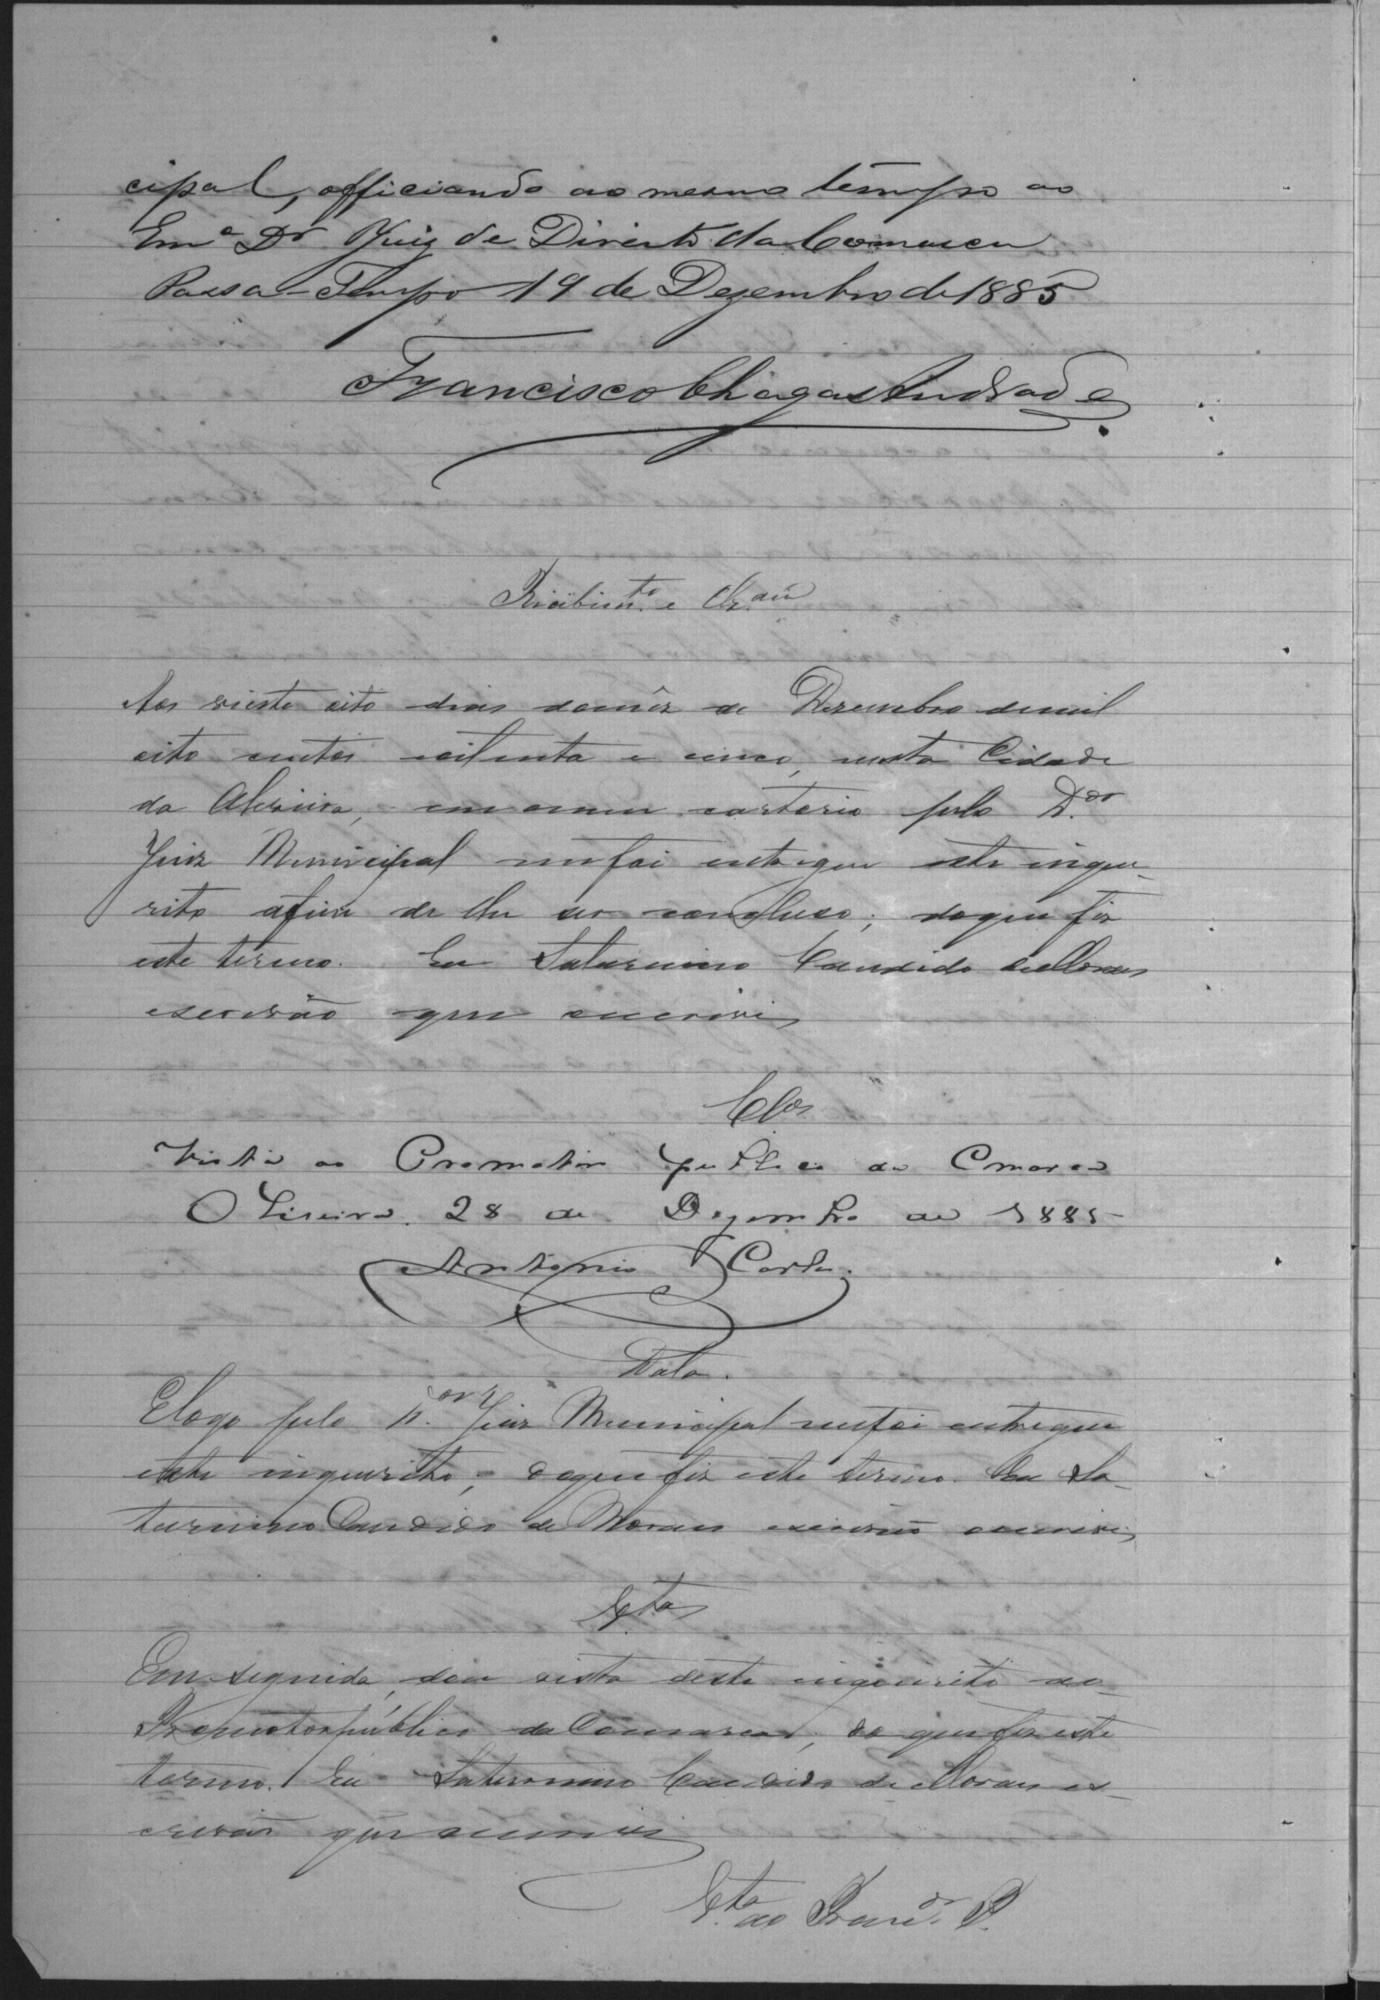 cipal, officiando ao mesmo tempo ao
Emº Dr Juiz de Direito da Comarca
Passa-Tempo 19 de Dezembro de 1885
Francisco Chagas Andrade
Recebimto e
Aos vinte oito dias do mês de Dezembro de mil
oito centos e oitenta e cinco, nesta Cidade
da Oliveira, em o meu cartorio pelo Dor
Juiz Municipal me foi entregue este inque-
rito afim de lhe ser concluso; do que fiz
este termo. Eu Saturnino Candido de Moraes
escrivão que escrevi
Clos
Vista ao Promotor publico da Comarca
Oliveira 28 de Dezembro de 1885
Antonio Carlos
Data.
E logo pelo Dor Juiz Municipal me foi entregue
este inquerito; do que fiz este termo. Eu Sa-
turnino Candido de Moraes escrivão escrevi
Vta
Em seguida, dou vista deste inquerito ao
Promotor publico da Comarca; do que fiz este
termo. Eu Saturnino Candido de Moraes es-
crivão que escrevi
Vta ao Promor P.